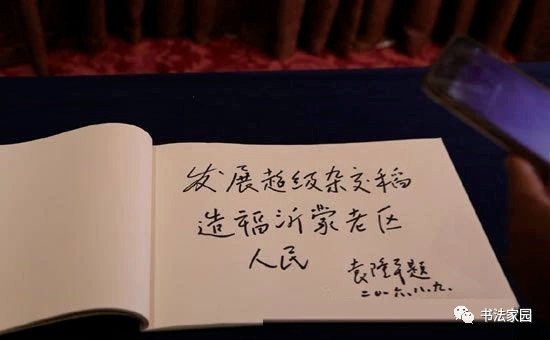 发展超级杂交稻
造福沂蒙老区
人民
袁隆平题
二〇一六.八.九.
书法家园